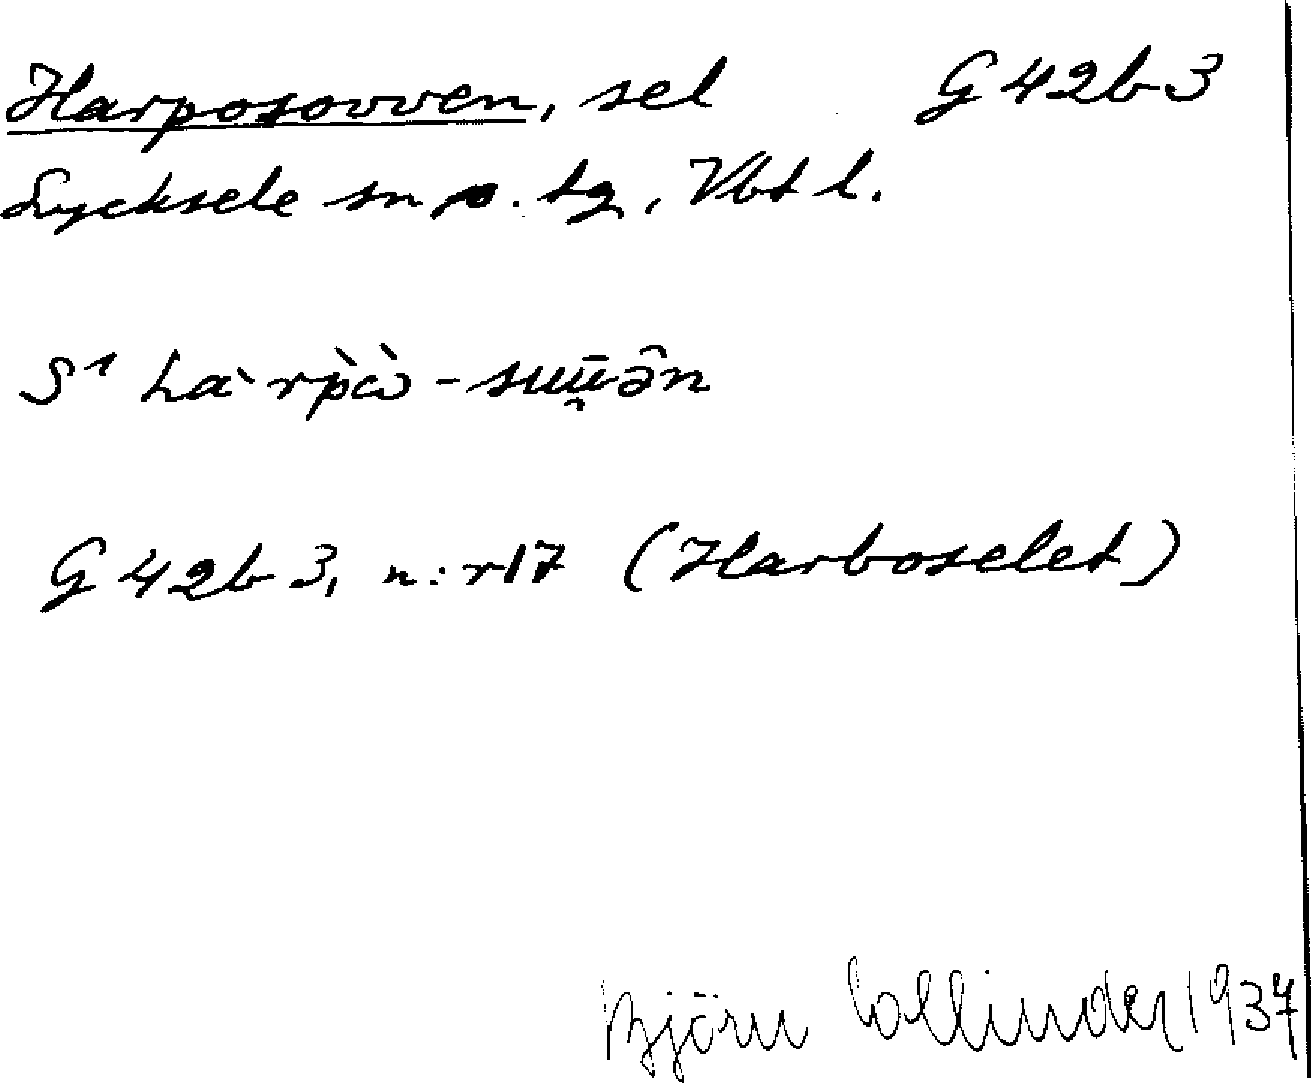 Harposovven, sel G 42b3
Lycksele sn o. tg, Vbtl.
S¹
G 42b3, n:r 17 (Harboselet)
Björn Collinder 1937